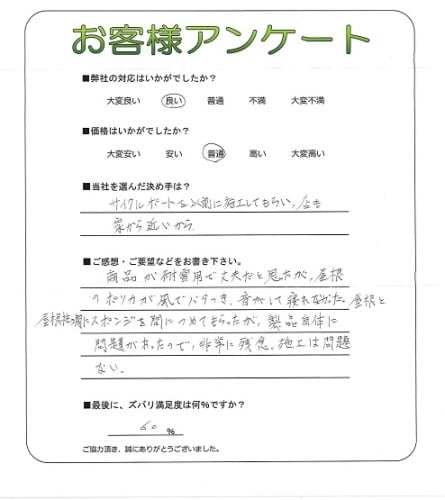 お客様アンケート
■弊社の対応はいかがでしたか?
大変良い 良い 普通 不満 大変不満
■価格はいかがでしたか?
大変安い 安い 普通 高い 大変高い
■当社を選んだ決め手は?
サイクルポートを以前に施工してもらい、店も
家から近いから
■ご感想・ご要望などをお書き下さい。
商品が耐雪用で丈夫だと思たが、屋根
のポリカが風でバタつき、音がして寝れなかた。屋根と
屋根枠の間にスポンジを間につめてもらったが、製品自体に
問題があったので、非常に残念。施工は問題
ない。
■最後に、ズバリ満足度は何%ですか?
60 %
ご協力頂き、誠にありがとうございました。